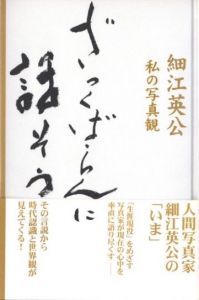 細江英公
私の写真観
ざっくばらんに
話そう
人間写真家
細江英公の
「いま」
「生涯現役」をめざす
写真家が現在の心中を
率直に語り尽くす——
その言説から
時代認識と世界観が
見えてくる!